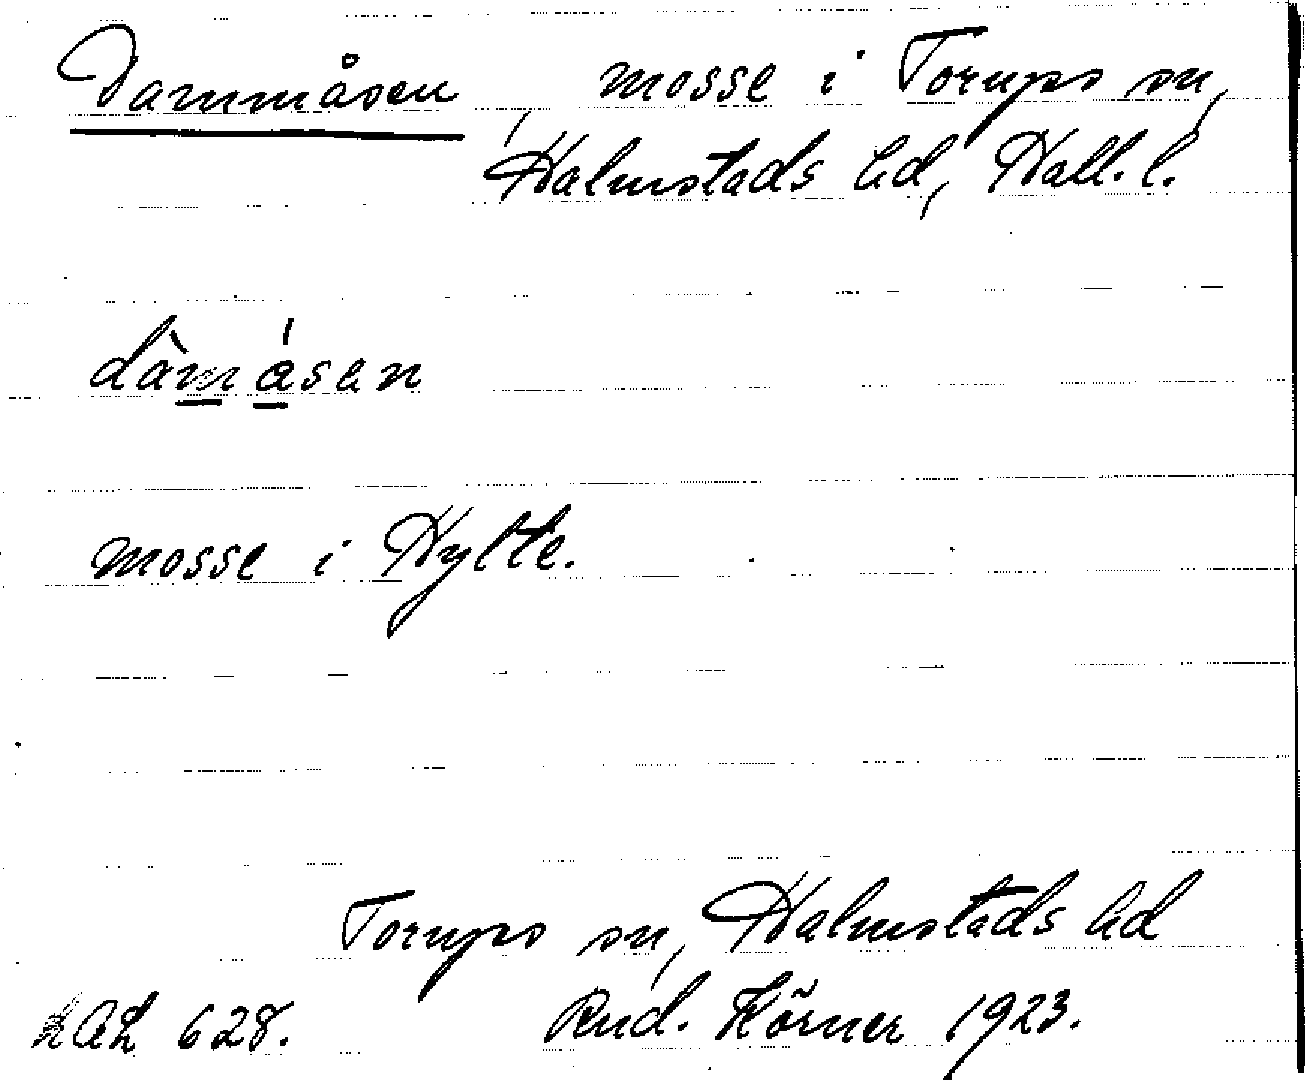 Dammåsen, mosse i Torups sn,
Halmstads hd, Hall. l.
dàmásan
mosse i Hylte.
Torups sn, Halmstads hd
LAL 628. Rud. Körner 1923.